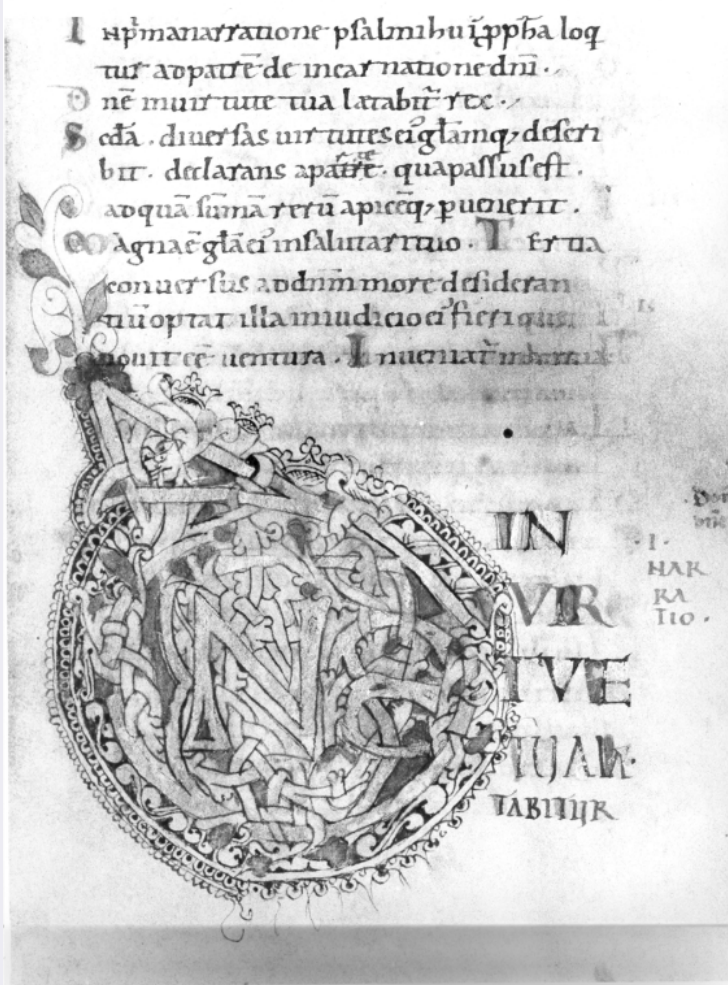 In p̄ma narratione psalmi huı᷒ ꝓph̄a loq
tur ad patrē de incarnatione dn̄i.
Dn̄e in uirtute tua lætabit̄ rex.
Scd̄a. diuersas uirtutes ei᷒ gl̄amq; descri
bit. declarans a patre. qua passus est.
ad quā sūmā rerū apicēq; puenerit.
Magna ē gl̄a ei᷒ in salutari tuo. Tertia
conuersus ad dn̄m more desideran
tiū optat illa in iudicio ei᷒ fieri quæ
nouit eē uentura. Inueniat̄
IN
VIR
TVTE
TUA
TABITUR
I.
NAR
RA
TIO.